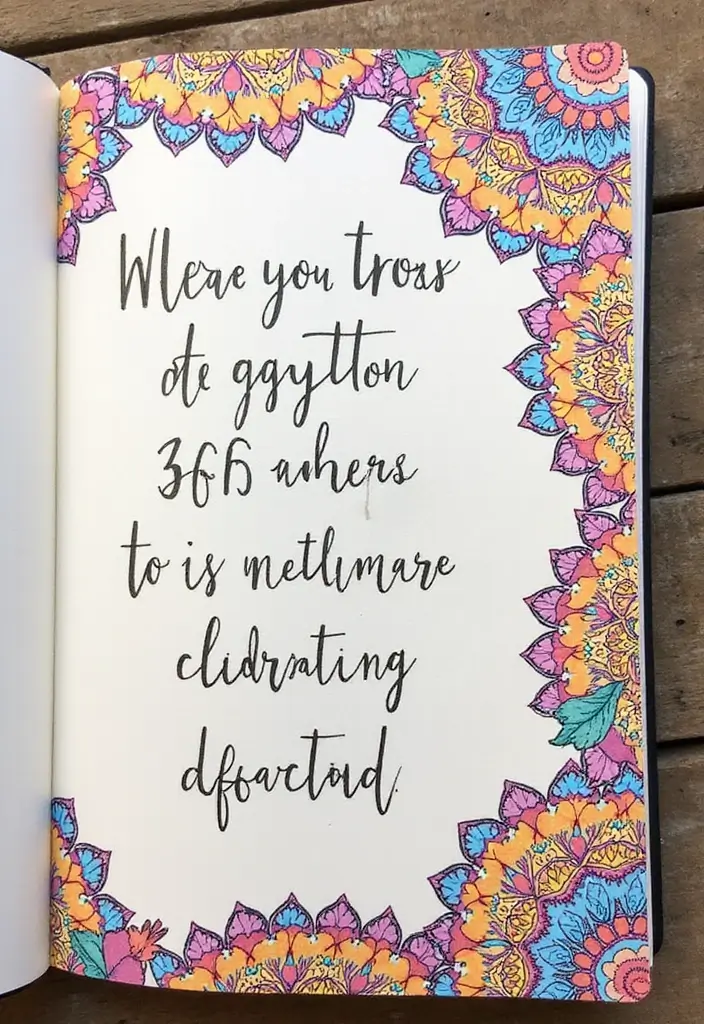 Wleae you troas
ote ggytton
36б anhers
to is metlumare
clidrsating
dfoarctoud